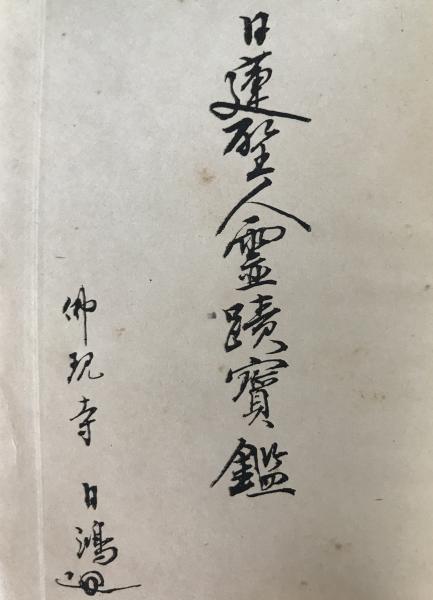 日蓮聖人霊蹟寶鑑
佛現寺 日鴻